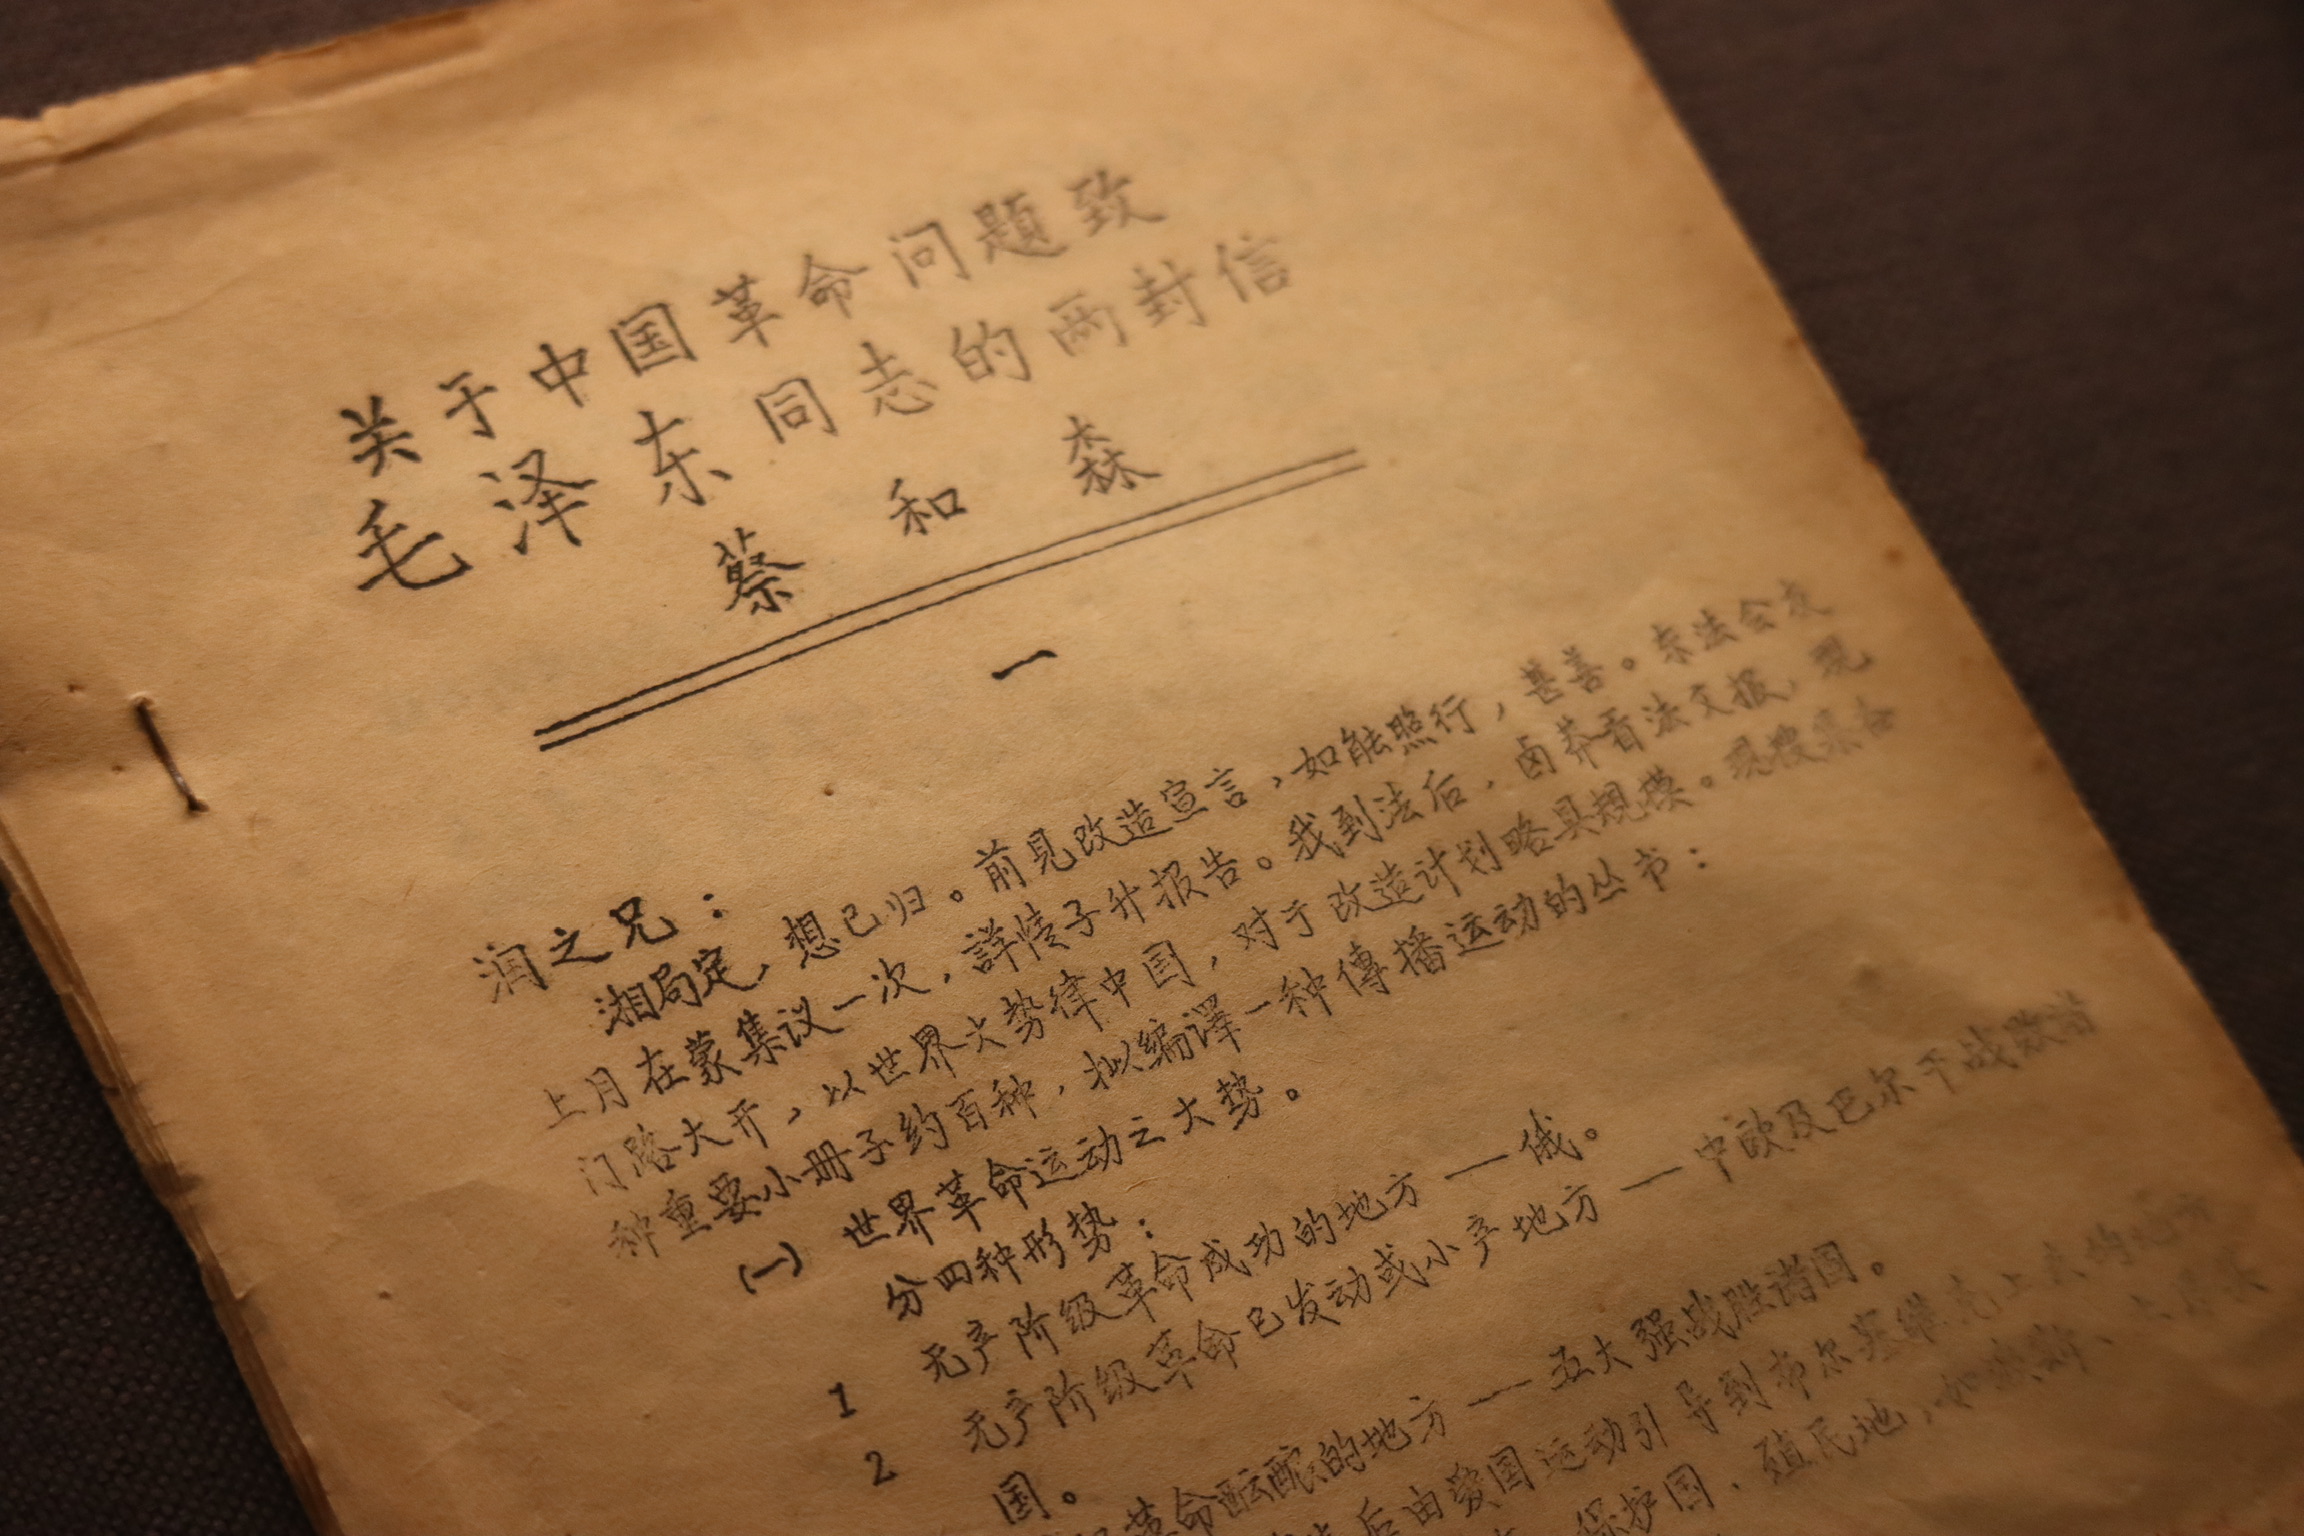 关于中国革命问题致
毛泽东同志的两封信
蔡和森
一
润之兄：
湘局定，想已归。前见改造宣言，如能照行，甚善。东法会友
上月在蒙集议一次，詳情子升报告。我到法后，卤莽看法文报，现
门路大开，以世界大势律中国，对于改造计划略具規模。现搜集各
种重要小册子约百种，拟编译一种傳播运动的丛书：
(一) 世界革命运动之大势。
分四种形势：
1 无产阶级革命成功的地方——俄。
2 无产阶级革命已发动或小产地方——中欧及巴尔干战败诸
国。
革命酝酿的地方——五大强战胜诸国。
后由爱国运动引导到布尔塞维克上去的地方
保护国、殖民地，如波斯、土耳其